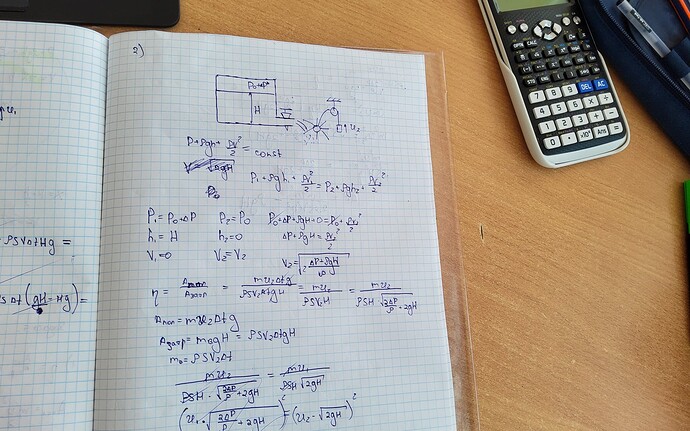 2)
P₀+ΔP
H
u₂
P+ρgh+ρv²/2 = const
P₁+ρgh₁+ρv₁²/2 = P₂+ρgh₂+ρv₂²/2
P₁ = P₀+ΔP P₂ = P₀ P₀+ΔP+ρgH+0 = P₀+ρv₂²/2
h₁ = H h₂=0 ΔP+ρgH = ρv₂²/2
V₁=0 V₂=V₂ V₂ = √(2 (ΔP+ρgH)/ρ)
η = Aпол/Aзатр = mu₂Δtg/ρSV₂ΔtgH = mu₂/ρSV₂H = mu₂/ρSH √(2ΔP/ρ+2gH)
Aпол = mu₂Δtg
Aзатр = m₀gH = ρSV₂ΔtgH
m₀ = ρSV₂Δt
mu₂/ρSH·√(2ΔP/ρ+2gH) = mu₁/ρSH√2gH
(u₁·√(2ΔP/ρ+2gH))² = (u₂·√2gH)²
ρSVΔtHg =
SΔt(gH-Hg) =
OPTN CALC
DEL AC
7 8 9
4 5 6
1 2 3
0 . ×10ˣ Ans =